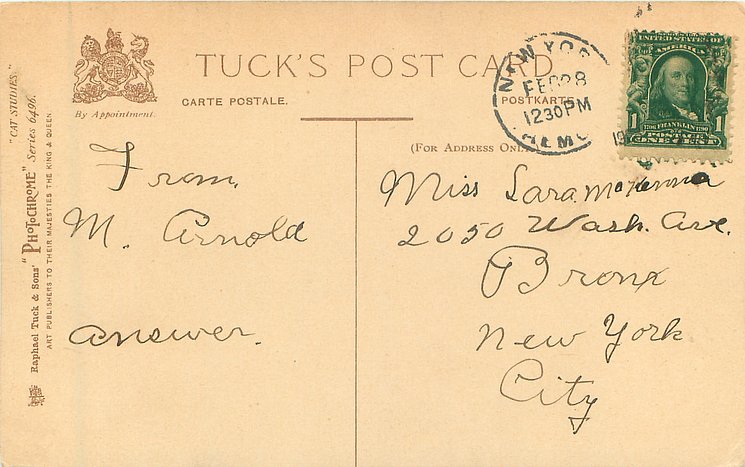 TUCK'S POST CARD
CARTE POSTALE.
POSTKARTE
(FOR ADDRESS ONLY)
By Appointment.
"CAT STUDIES."
"PHOTOCHROME" Series 6496.
Raphael Tuck & Sons'
ART PUBLISHERS TO THEIR MAJESTIES THE KING & QUEEN.
NEW YOR
FEB 28
1230 PM
UNITED STATES OF
AMERICA
1706 FRANKLIN 1790
1 POSTAGE 1
ONE CENT
From,
M. Arnold
answer.
Miss Sara McKenna
2050 Wash. Ave.
Bronx
New York
City